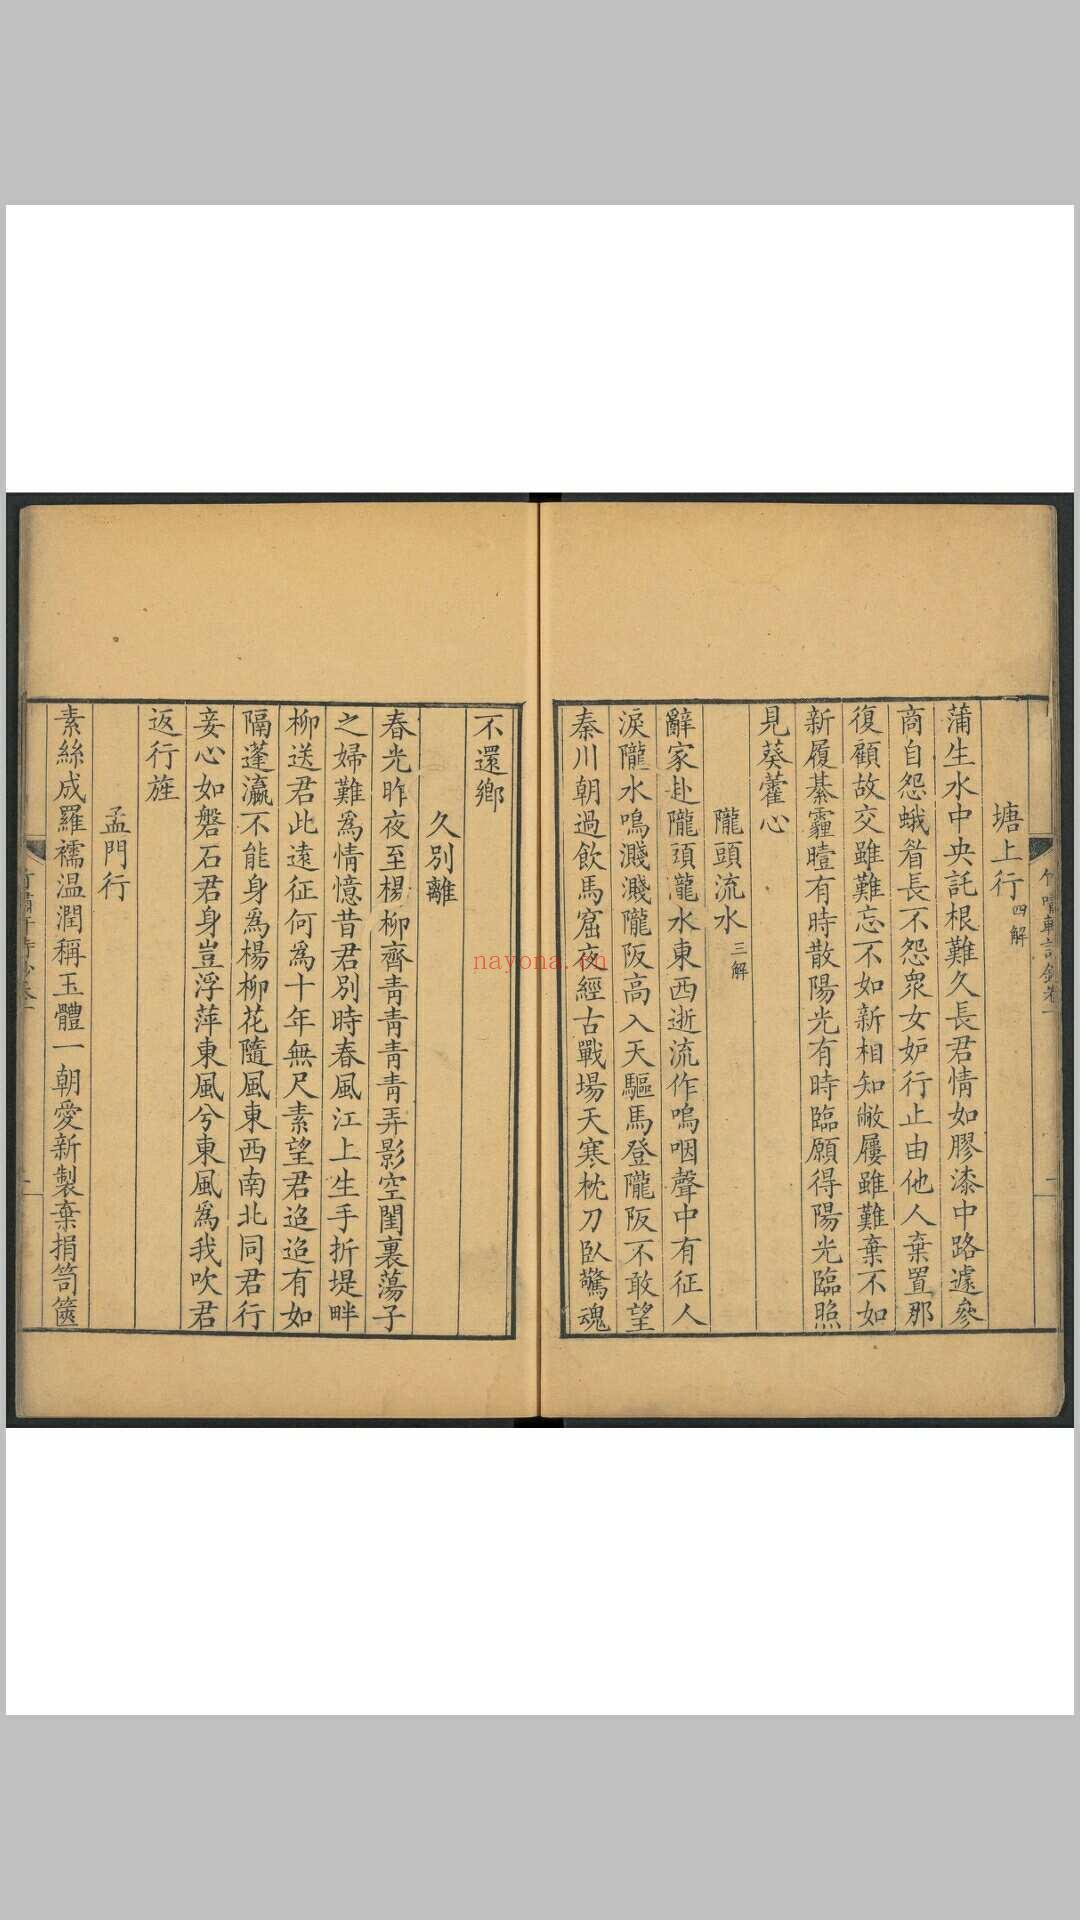 塘上行四解
蒲生水中央託根難久長君情如膠漆中路遽參
商自怨蛾眉長不怨衆女妒行止由他人棄置那
復顧故交雖難忘不如新相知敝屨雖難棄不如
新履綦霾曀有時散陽光有時臨願得陽光臨照
見葵藿心
隴頭流水三解
辭家赴隴頭隴水東西逝流作嗚咽聲中有征人
淚隴水鳴濺濺隴阪高入天驅馬登隴阪不敢望
秦川朝過飲馬窟夜經古戰場天寒枕刀臥驚魂
不還鄉
久別離
春光昨夜至楊柳齊青青青青弄影空閨裏蕩子
之婦難爲情憶昔君別時春風江上生手折堤畔
柳送君此遠征何爲十年無尺素望君迢迢有如
隔蓬瀛不能身爲楊柳花隨風東西南北同君行
妾心如磐石君身豈浮萍東風兮東風爲我吹君
返行旌
孟門行
素絲成羅襦温潤稱玉體一朝愛新製棄捐笥篋
nayona.cn